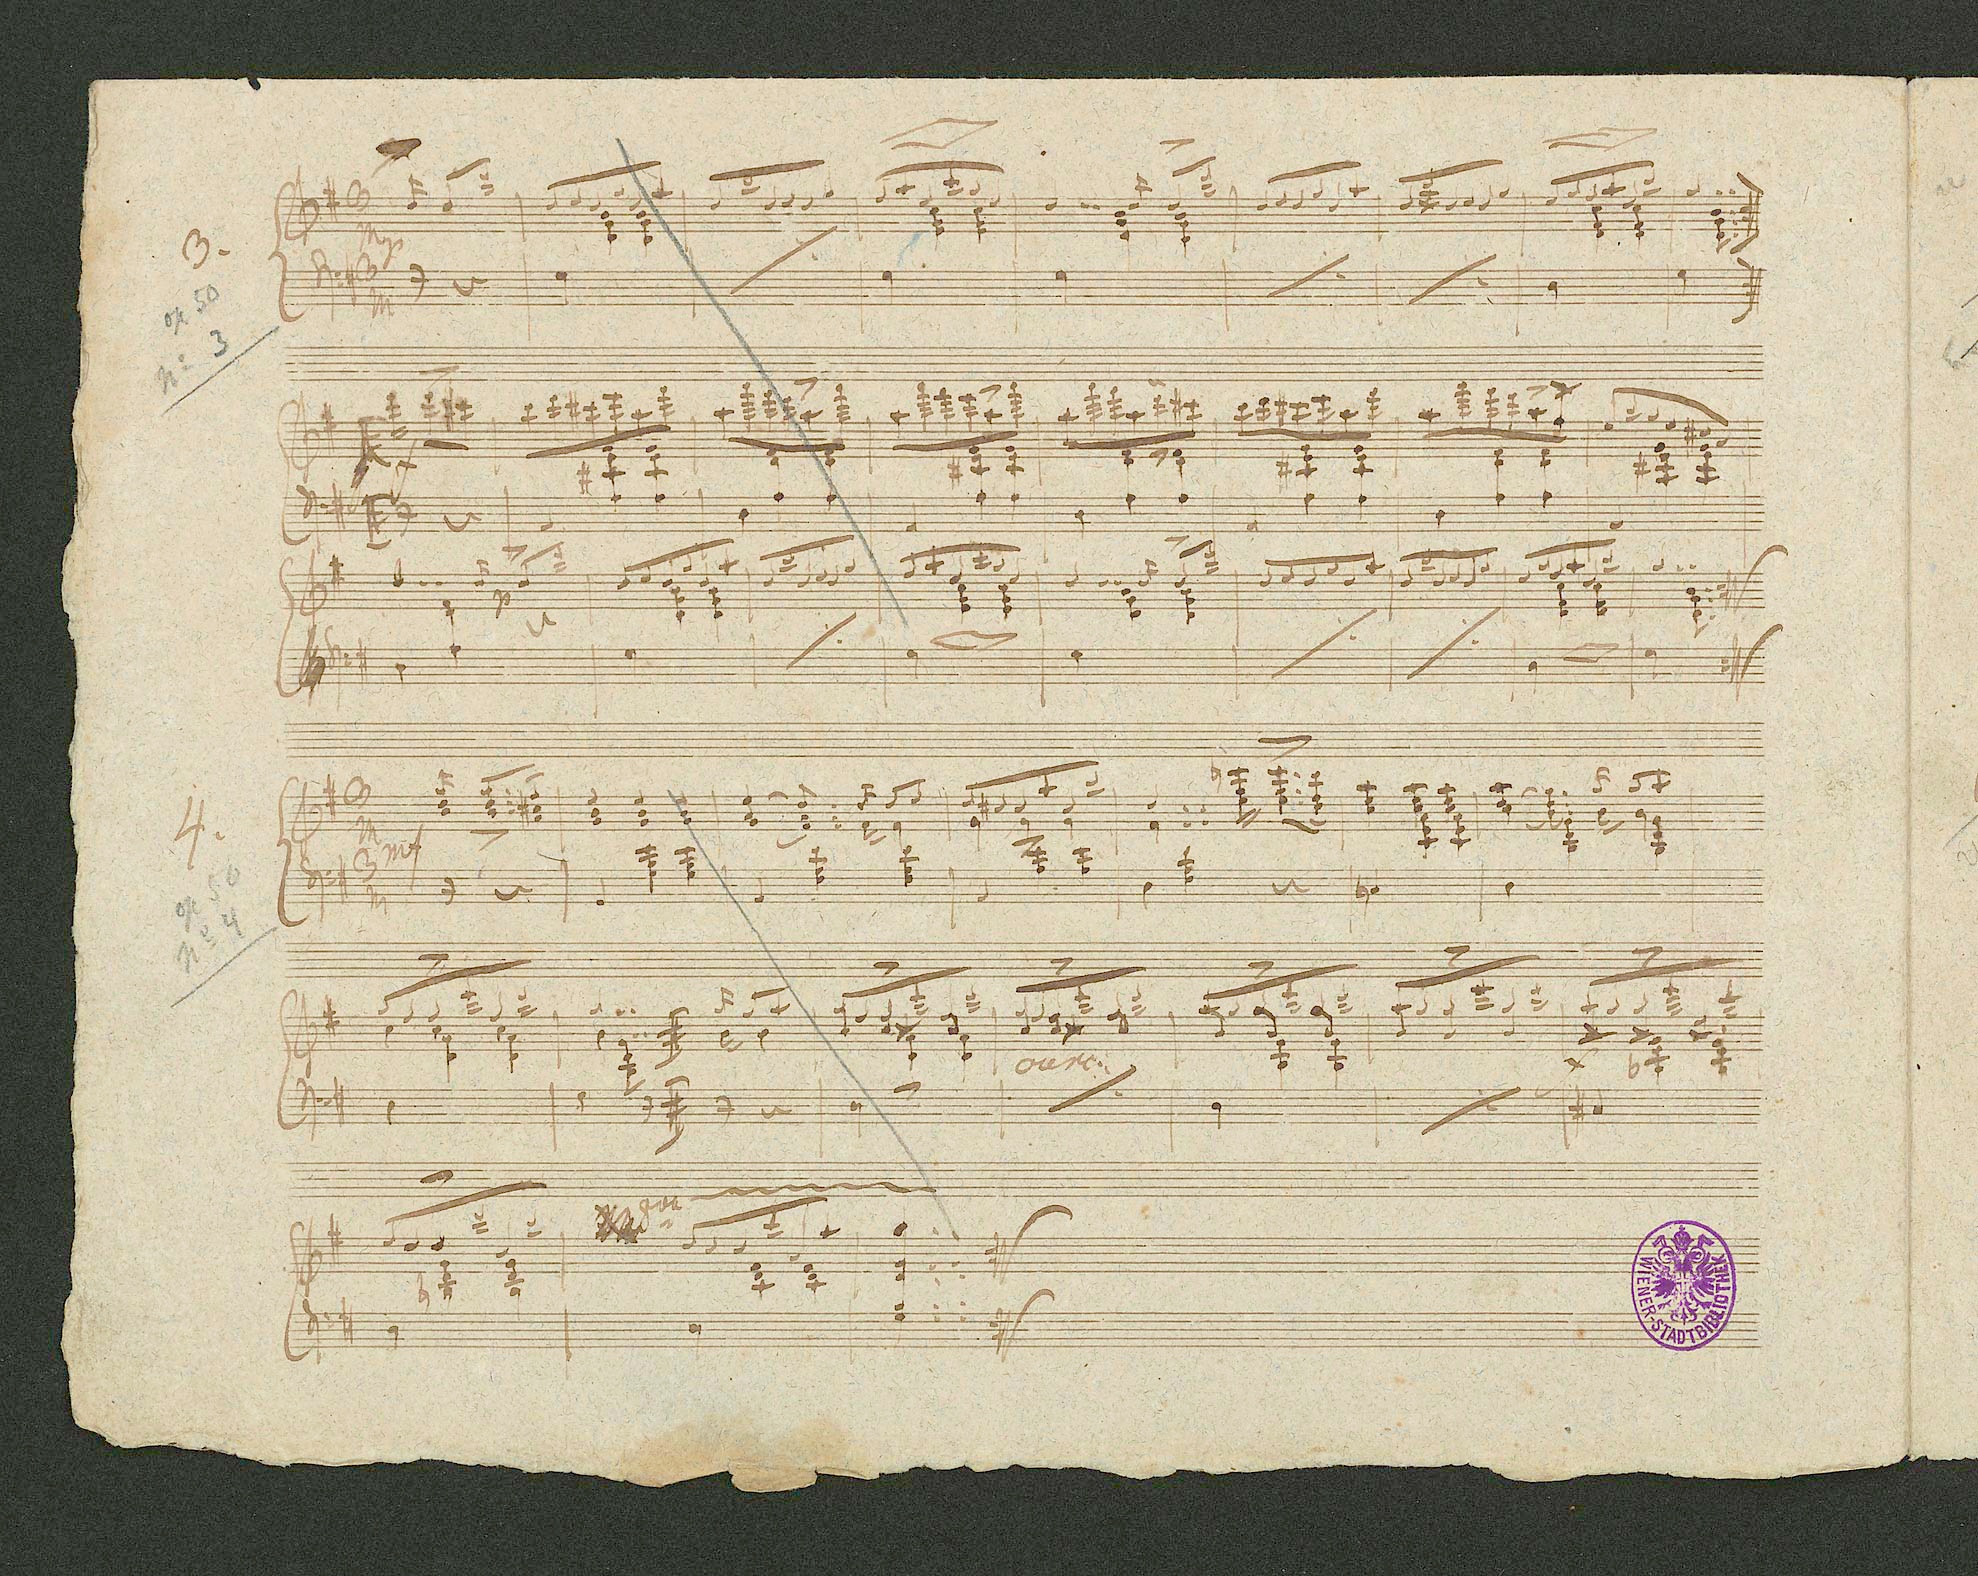 3.
op 50
Nº 3
p
f
p
4.
mf
op 50
Nº 4
cresc.
f
8va
WIENER-STADTBIBLIOTHEK